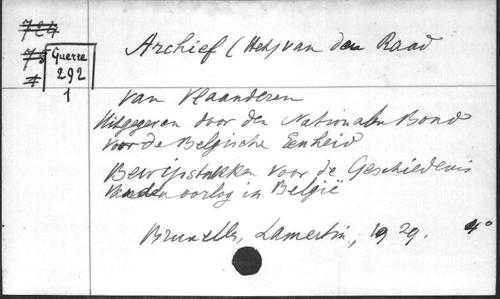 724
75
Guerre
292
1
Archief (Het) van den Raad
van Vlaanderen
Uitgegeven door den Nationalen Bond
voor de Belgische Eenheid
Bewijsstukken voor de Geschiedenis
van den oorlog in België
Bruxelles, Lamertin, 1929. 4°